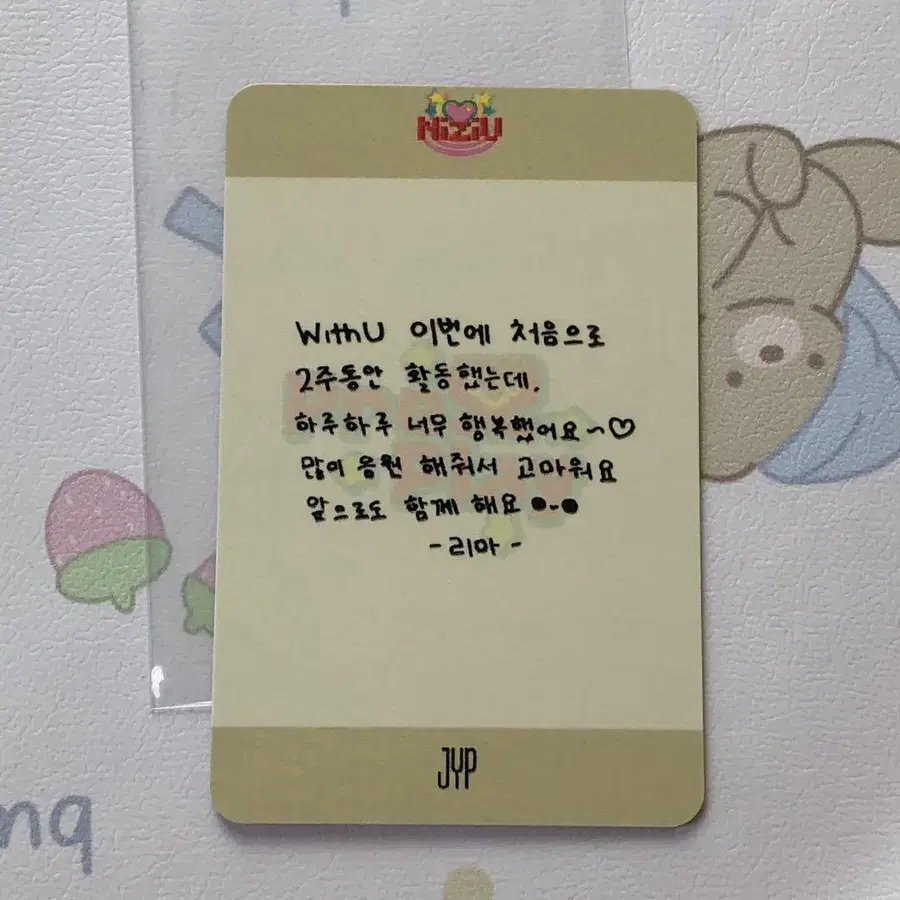 NiziU
WithU 이번에 처음으로
2주동안 활동했는데,
하루하루 너무 행복했어요~♡
많이 응원 해줘서 고마워요
앞으로도 함께 해요 ●-●
- 리마 -
JYP
ng